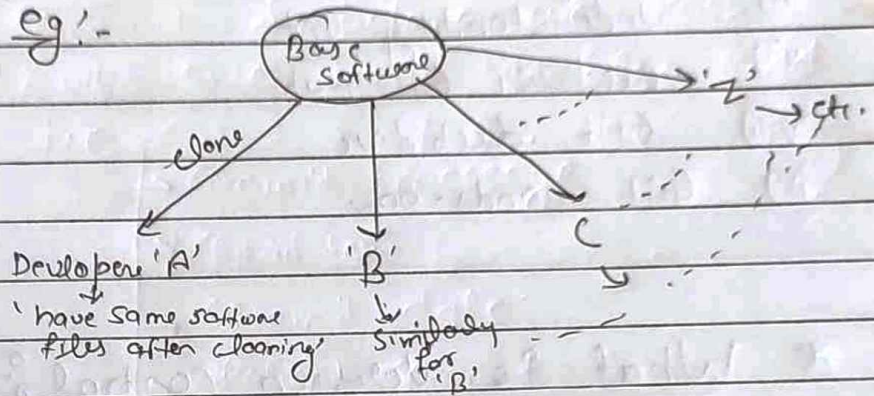 eg:-
Base
software
'Z'
→ etc.
clone
C
Developer 'A'
'B'
'have same software
files after cloaning'
Similarly
for
'B'